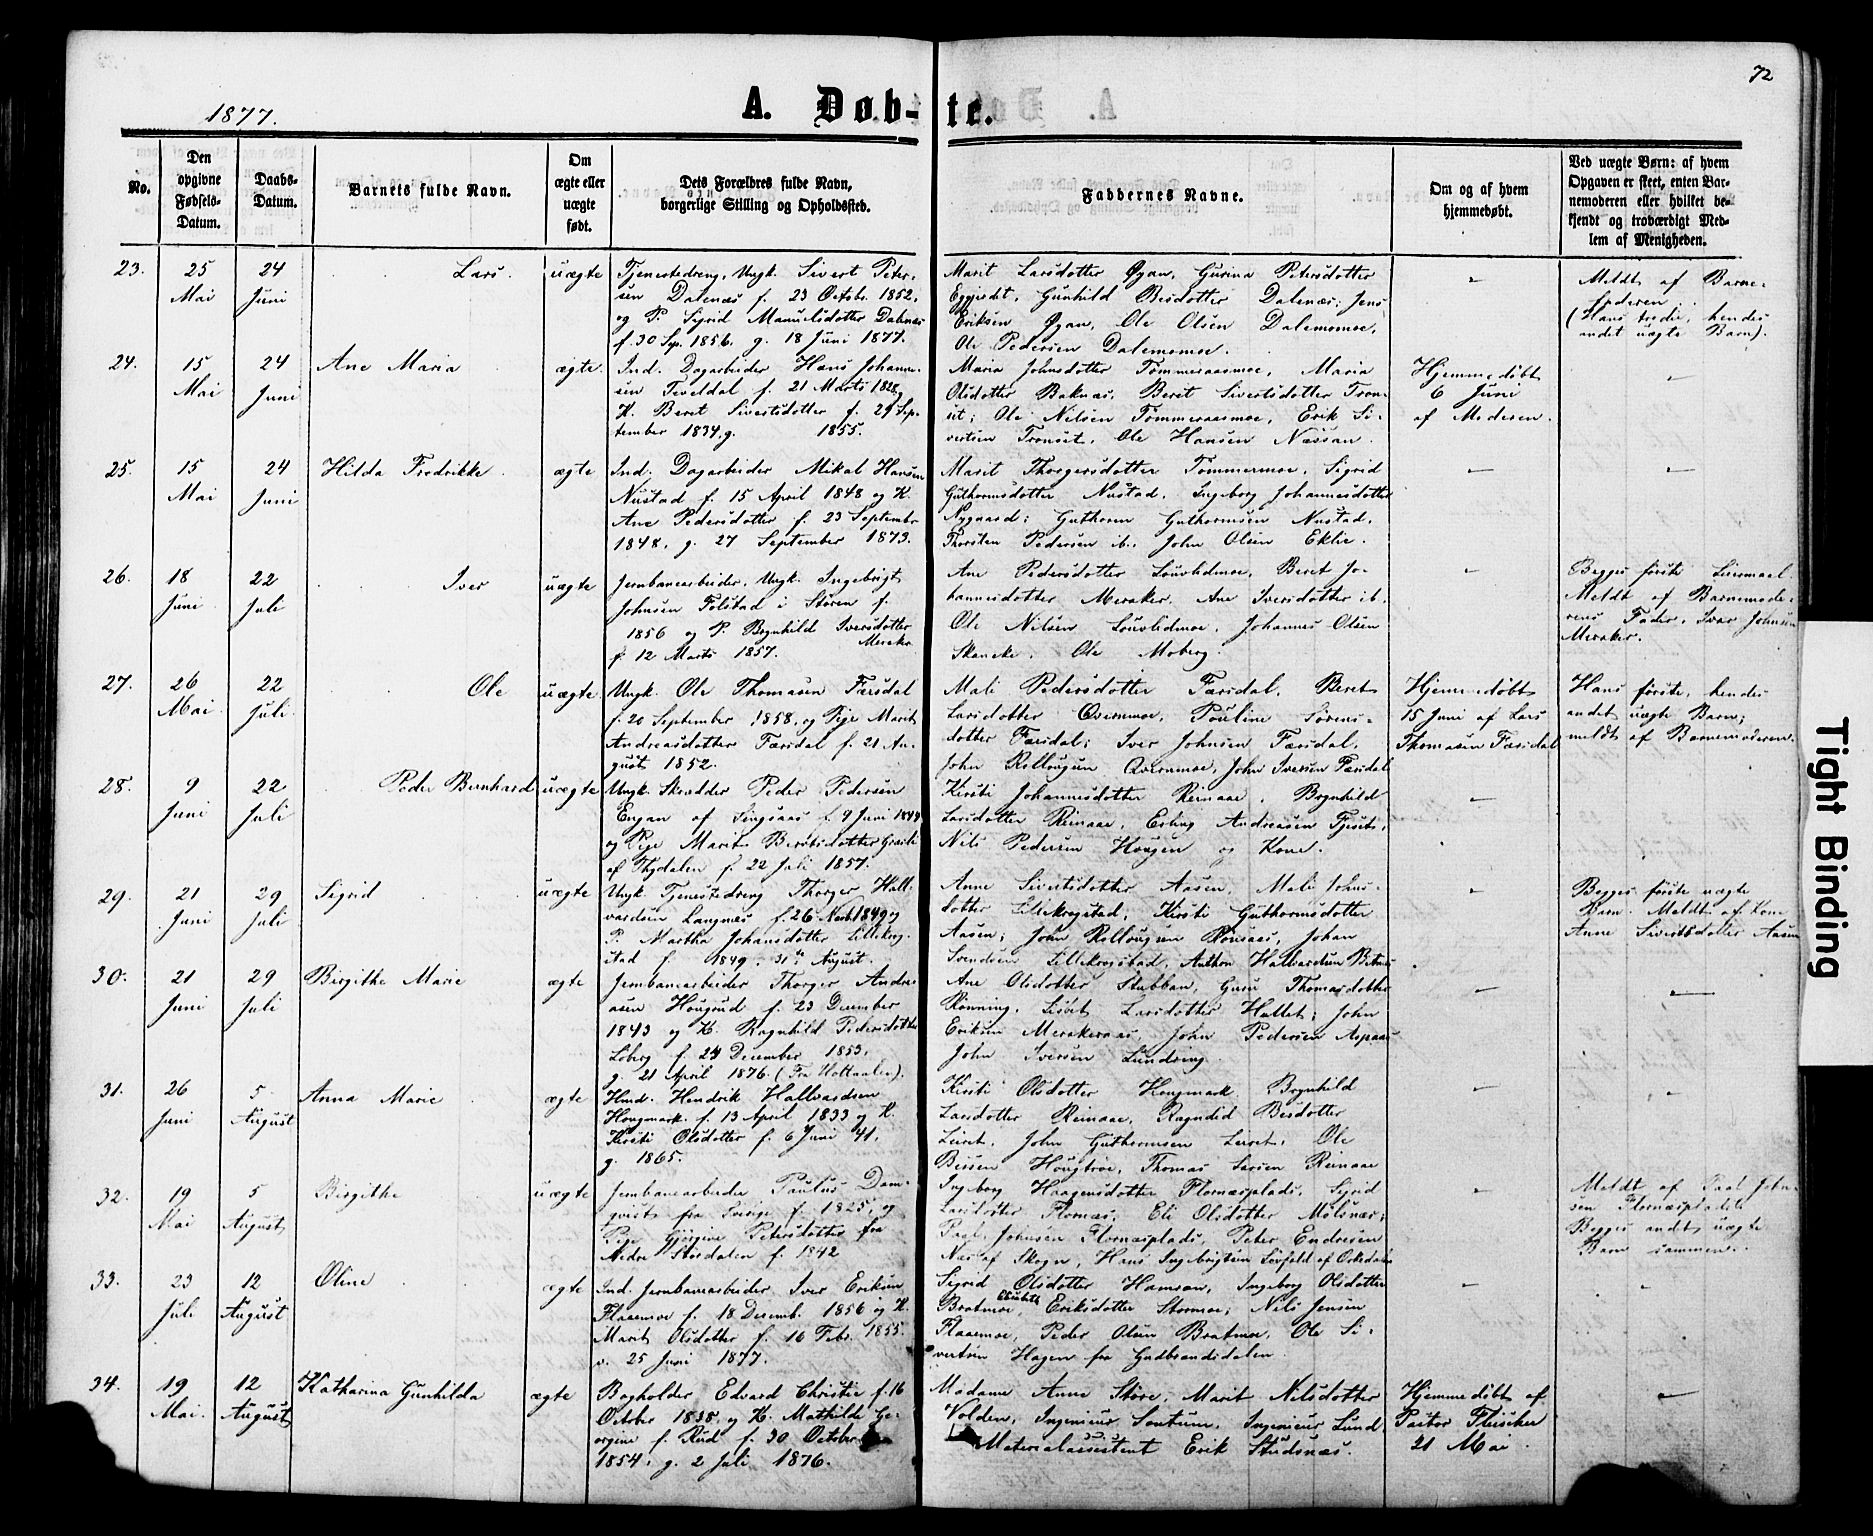 72
1877.
A. Døb-te.
No.
Den
opgivne
Fødsels-
Datum.
Daabs-
Datum.
Barnets fulde Navn.
Om
ægte eller
uægte
født.
Dets Forældres fulde Navn,
borgerlige Stilling og Opholdssted.
Faddernes Navne.
Om og af hvem
hjemmedøbt.
Ved uægte Børn: af hvem
Opgaven er skeet, enten Bar-
nemoderen eller hvilket be-
kjendt og troværdigt Med-
lem af Menigheden.
23.
25
Mai
24
Juni
Lars.
uægte
Tjenestedreng, Ungk. Sivert Peter-
sen Dalenæs f. 23 Octobr. 1852,
og P. Sigrid Manuelsdotter Dalenæs
f. 30 Sep. 1856. g. 18 Juni 1877.
Marit Larsdotter Øgan, Gurina Petersdotter
Eggjedet, Gunhild Beisdotter Dalenæs; Jens
Eriksen Øgan, Ole Olsen Dalememoe,
Ole Pedersen Dalememoe.
–
Meldt af Barne-
faderen.
(Hans tredie, hendes
andet uægte Barn).
24.
15
Mai
24
Juni
Ane Maria
ægte.
Ind. Dagarbeider Hans Johann-
sen Teveldal f. 21 Marts 1828,
K. Beret Sivertsdotter f. 29 Sep-
tember 1834, g. 1855.
Maria Johnsdotter Tømmeraasmoe, Maria
Olsdotter Baknæs, Beret Sivertsdotter Tron-
set; Ole Nilsen Tømmeraasmoe, Erik Si-
vertsen Tronset, Ole Hansen Næssan.
Hjemmedøbt
6 Juni
af Moderen.
–
25.
15
Mai
24
Juni
Hilda Fredrikke
ægte
Ind. Dagarbeider Mikal Hansen
Nustad f. 15 April 1848 og K.
Ane Pedersdotter f. 23 Septembr
1848, g. 27 September 1873.
Marit Thorgersdotter Tømmermoe, Sigrid
Guthormsdotter Nustad, Ingeborg Johannesdotter
Nygaard; Guthorm Guthormsen Nustad,
Thorsten Pedersen ib., John Olsen Eklie.
–
–
26.
18
Juni
22
Juli
Iver
uægte
Jernbanearbeider, Ungk. Ingebrigt
Johnsen Folstad i Støren f.
1856 og P. Brynhild Iversdotter
Meraker
f. 12 Marts 1857.
Ane Pedersdotter Souvlidmoe, Beret Jo-
hannesdotter Meraker, Ane Iversdotter ib.
Ole Nilsen Souvlidmoe, Johannes Olsen
Skancke, Ole Moberg.
–
Begges første Leiermaal.
Meldt af Barnemode-
rens Fader, Ivar Johnsen
Meraker.
27.
26
Mai
22
Juli.
Ole
uægte
Ungk. Ole Thomasen Færsdal
f. 20 September 1858, og Pige Marit
Andreasdotter Færsdal f. 21 Au-
gust 1852.
Mali Pedersdotter Færsdal, Beret
Larsdotter Qvernmoe, Pouline Sørens-
dotter Færsdal; Iver Johnsen Færsdal,
John Rollougsen Qvernmoe, John Iversen Færsdal
Hjemmedøbt
15 Juni af Lars
Thomasen Færsdal
Hans første, hendes
andet uægte Barn;
meldt af Barnemoderen.
28.
9
Juni
22
Juli
Peder Bernhard
uægte
Ungk. Skrædder Peder Pedersen
Engan af Singsaas f. 9 Juni 1849
og Pige Marit Berntsdotter
af Thydalen f. 22 Juli 1857.
Kirsti Johannesdotter Reinaae, Brynhild
Larsdotter Reinaae, Erling Andreasen Fjeset,
Nils Pedersen Hougen og Kone.
–
29.
21
Juni
29
Juli
Sigrid
uægte
Ungk. Tjenestedreng Thorger Hall-
vardsen Langnæs f. 26 Novb. 1849 og
P. Martha Johansdotter Lillekrog-
stad f. 1849. 31te August.
Anne Sivertsdotter Aasen, Mali Johns-
dotter Lillekrogstad, Kirsti Guthormsdotter
Aasen; John Rollougsen Rønsaas, Johan
Svendsen Lillekrogstad, Anthon Hallvardsen
–
Begges første uægte
Barn. Meldt af Kone
Anne Sivertsdotter Aasen
30.
21
Juni
29
Juli
Birgithe Marie
ægte
Jernbanearbeider Thorger Andre-
asen Hougrud f. 23 December
1843 og K. Ragnhild Pedersdotter
Loberg f. 24 December 1853.
g. 21 April 1876. (Fra Holtaalen).
Ane Olsdotter Stubban, Guru Thomasdotter
Rønning, Lisbet Larsdotter Hallet; John
Eriksen Merakeraas, John Pedersen Aspaas
John Iversen Lundring.
–
–
31.
26
Juni
5
August
Anna Marie
ægte
Hmd. Hendrik Hallvardsen
Hougmark f. 13 April 1833 og K.
Kirsti Olsdotter f. 6 Juni 41.
g. 1865.
Kirsti Olsdotter Hougmark, Brynhild
Larsdotter Reinaae, Ragndid Beisdotter
Leiret, John Guthormsen Leiret, Ole
Beisen Hougtrøe, Thomas Larsen Reinaae
–
32.
19
Mai
5
August
Birgithe
uægte
Jernbanearbeider Paulus Dam-
qvist fra Sverige f. 1825, og
Pige Gjørgine Petersdotter fra
Nedre Størdalen f. 1842
Ingeborg Haagensdotter Flornæsplads, Sigrid
Larsdotter Flornæs, Eli Olsdotter Molsnæs;
Paal Johnsen Flornæsplads, Peter Endresen
Næs af Skogn, Hans Ingebrigtsen af Orkedalen
–
Meldt af Paal John-
sen Flornæsplads
Begges andet uægte
Barn sammen.
33.
23
Juli
12
August
Oline
ægte
Ind. Jernbanearbeider Iver Eriksen
Flaaemoe f. 18 Decemb. 1856 og K.
Marit Olsdotter f. 16 Febr. 1855.
v. 25 Juni 1877.
Sigrid Olsdotter Hamsan, Ingeborg Olsdotter
Bratmoe, Elisabeth Eriksdotter Stormoe; Nils Jensen
Flaaemoe, Peder Olsen Bratmoe, Ole Si-
vertsen Hagen fra Gudbrandsdalen
–
34.
19
Mai.
12
August
Katharina Gunhilda
ægte
Bogholder Edvard Christie f. 16
October 1838, og K. Mathilde Ge-
orgine f. Rud f. 30 October
1854, g. 2 Juli 1876.
Madame Anne Støre, Marit Nilsdotter
Volden, Ingenieur Sontum, Ingenieur Lund
Materialassistent Erik Studsnæs.
Hjemmedøbt af
Pastor Fleischer
21 Mai.
–
Tight Binding